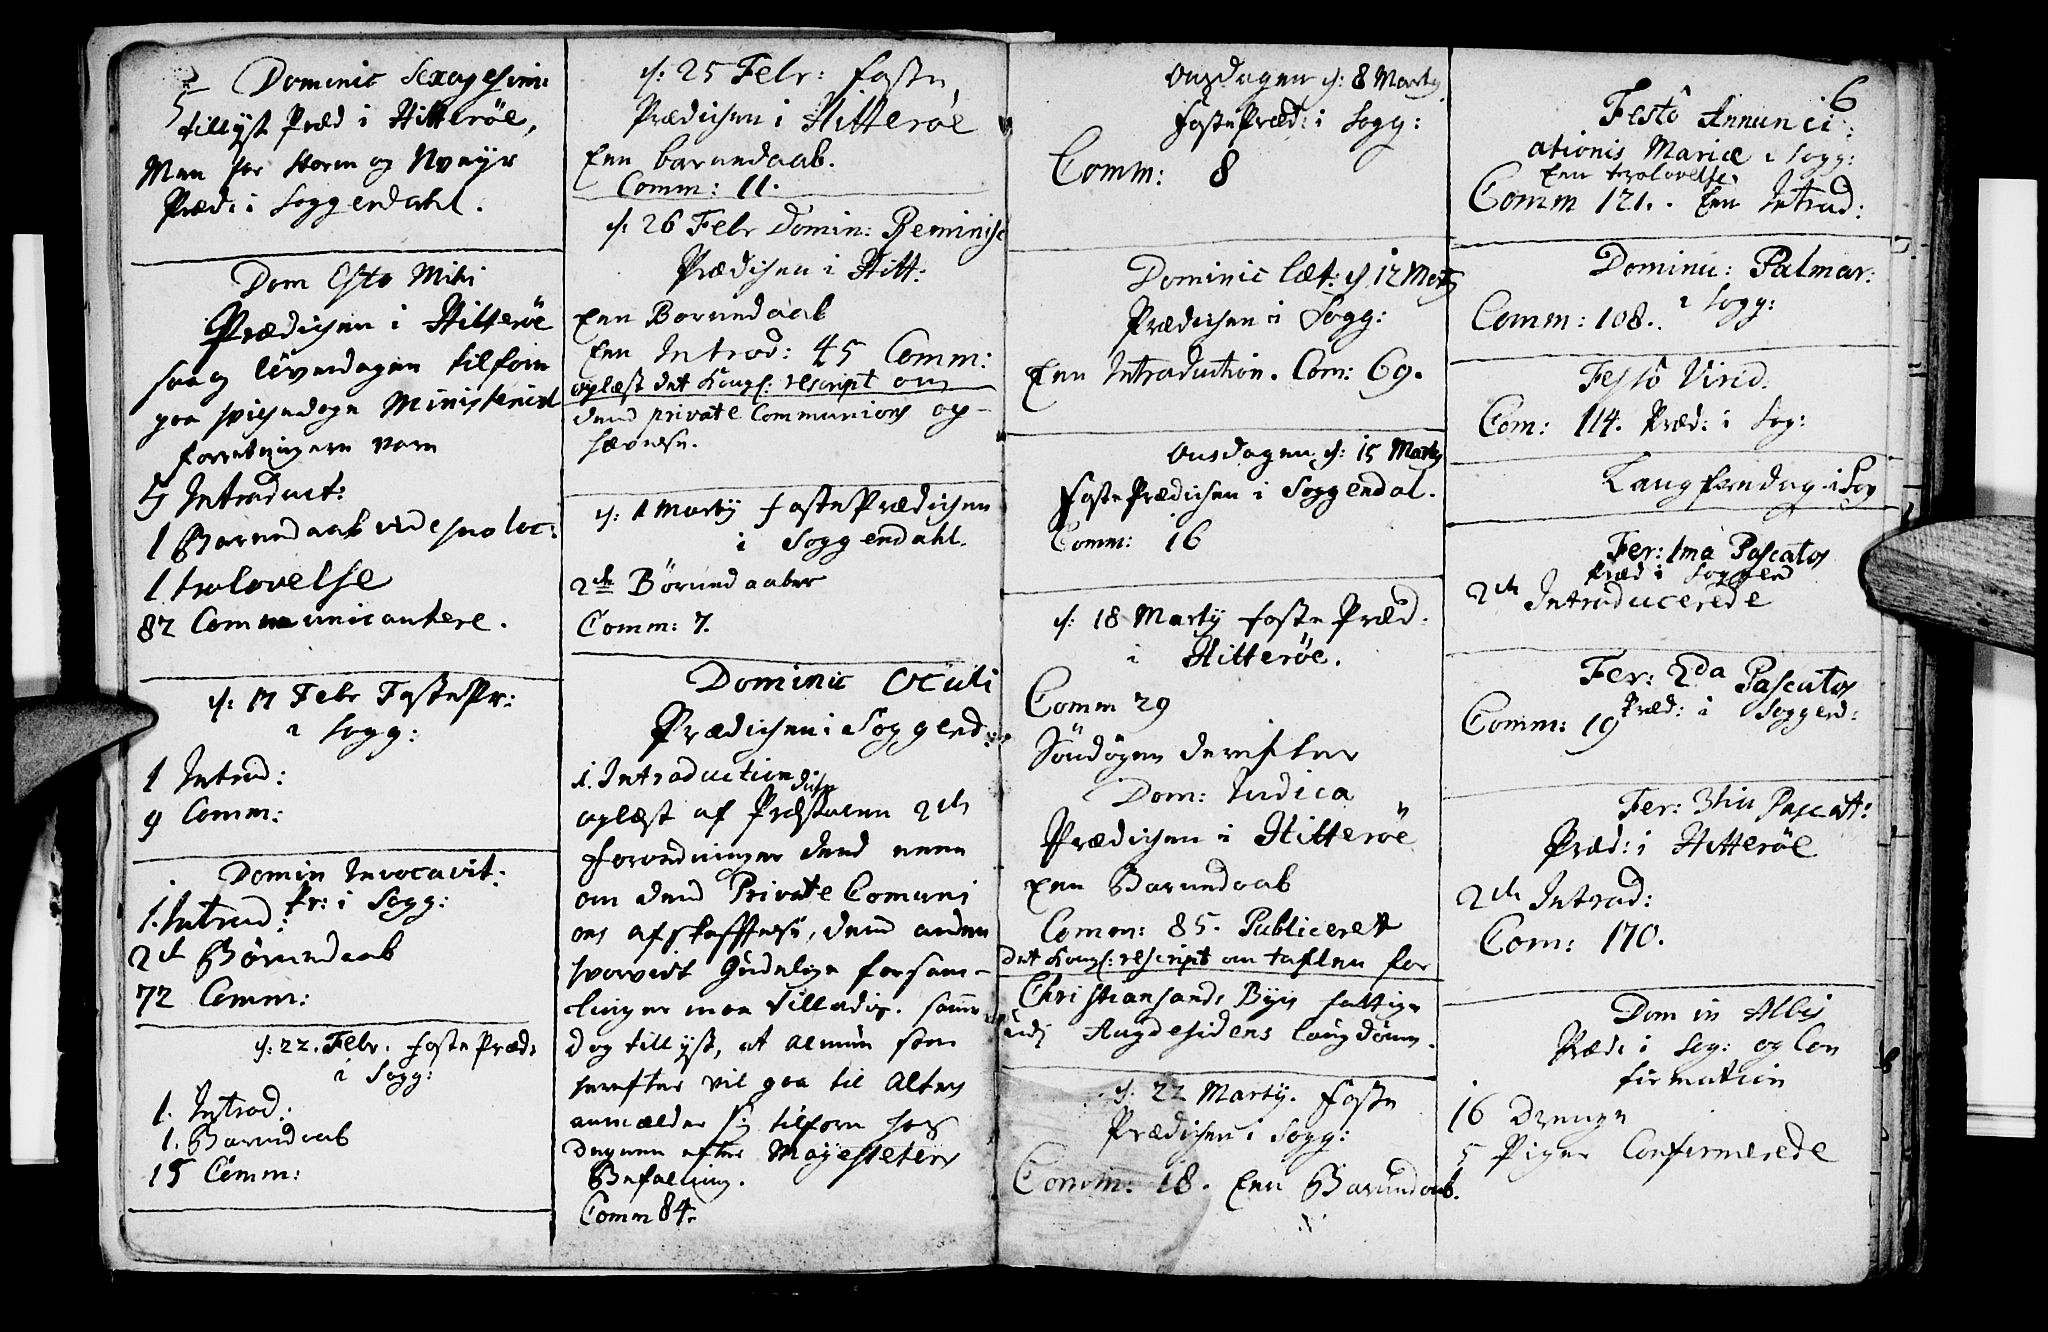 Dominic Sexagesim:
tillyst Præd i Hitterøe,
Men for storm og Uveyr
Præd: i Soggendahl.
Dom Esto Mihi
Prædichen i Hitterøe
saa og löverdagen tilforn
paa
forretningern vare
5 Introduct:
1 Barnedaab vide suo loc:
1 trolovelse
87 Communicantere.
d: 17 Febr FastePr:
i Sogg:
1 Introd:
9 Comm:
Domin Invocavit:
Pr: i Sogg:
1. Introd:
2de Börnedaab
72 Comm:
d: 22. Febr. faste Præd:
i Sogg:
1. Introd:
1. Barnedaab
15 Comm:
d: 25 Febr: faste
Prædichen i Hitterøe
Een barnedaab.
Comm: 11.
d: 26 Febr Domin: Reminisc
Prædichen i Hitt:
Een Barnedaab
Een Introd: 45 Comm:
oplæst det Kongl: rescript om
dend private Communions op-
hævelse.
d: 1 Martij fastePrædichen
i Soggendahl.
2de Börnedaaber
Comm: 7.
Dominic Oculi
Prædichen i Soggend:
1. Introduction
oplæst af Prædstolen disse 2de
forordninger dend eene
om dend Private Comuni
ons afskaffelse, dend anden
hvorvidt Gudelige forsam-
linger maa tilladis. samme
dag tillyst, at Almun som
herefter vil gaa til Alters
anmælder sig tilforn hos
degnen efter Majestetens
Befaling.
Comm 84.
Onsdagen d: 8 Martij
faste Præd: i Sogg:
Comm: 8
Dominic læt: d 12 Mart
Prædichen i Sogg:
Een Introduction. Com: 69.
Onsdagen d: 15 Martij
faste Prædichen i Soggendal.
Comm: 16
d: 18 Martij faste Præd:
i Hitterøe.
Comm 29
Söndagen derefter
Dom: Judica
Prædichen i Hitterøe
Een Barnedaab
Comm: 85. Publiceret
det Kongl: rescript om taflen for
Christiansands Byes fattige
udj Augdesidens laugdömm.
d: 22 Martij. faste
Prædichen i Sogg:
Comm: 18. Een Barnedaab.
6
Festo Annunci
ationis Mariæ i Sogg:
Een trolovelse.
Comm 121. Een Introd:
Dominic: Palmar:
Comm: 108. i Sogg:
Festo Virid:
Com: 114. Præd: i Sog:
Langfredag i Sog
Fer: 1ma Pascatos
Præd i Soggend
2de Introducerede
Fer: 2da Pascatos
Præd: i Soggend:
Comm: 19
Fer: 3tia Pascat:
Præd: i Hitterøe
2de Introd:
Com: 170.
Dom in Albis
Præd: i Sog: og Con
firmation
16 Drenge
5 Piger Confirmerede